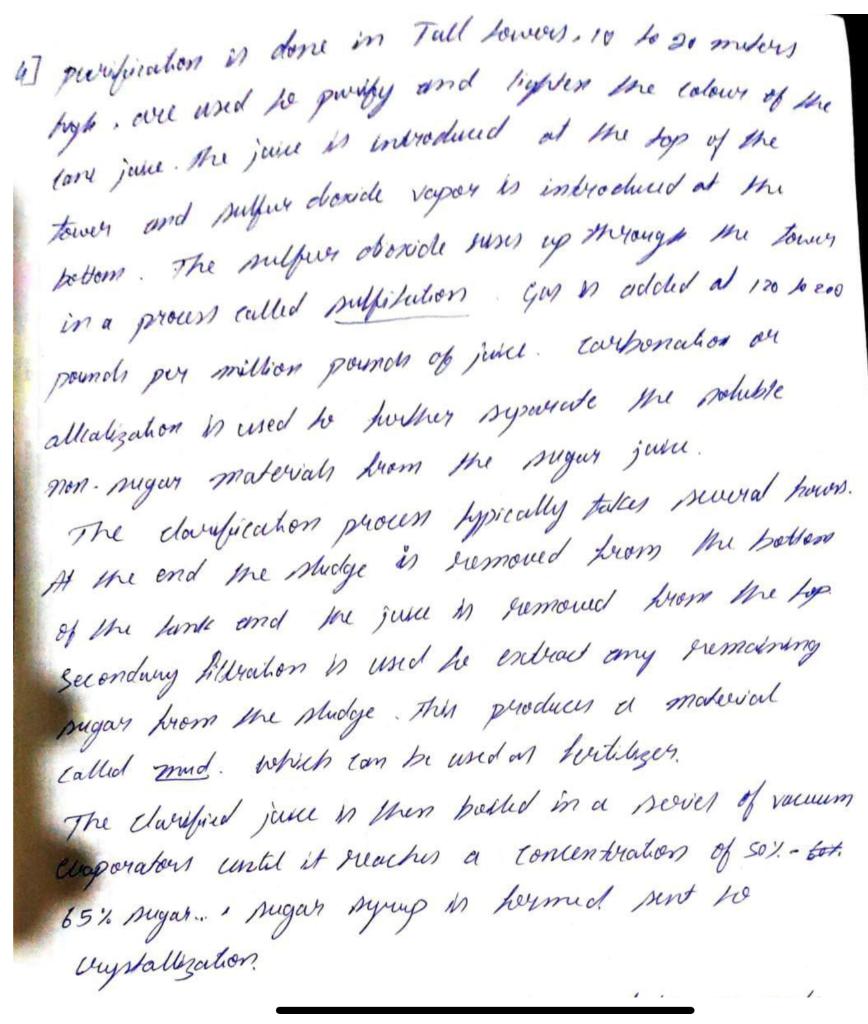 4] purification is done in Tall towers, 10 to 20 meters
high, are used to purify and lighten the colour of the
cane juice. The juice is introduced at the top of the
tower and sulfur dioxide vapor is introduced at the
bottom. The sulfur dioxide rises up through the tower
in a process called sulfitation. Gas is added at 120 to 200
pounds per million pounds of juice. Carbonation or
alkalization is used to further separate the soluble
non-sugar materials from the sugar juice.
The clarification process typically takes several hours.
At the end the sludge is removed from the bottom
of the tank and the juice is removed from the top.
Secondary filtration is used to extract any remaining
sugar from the sludge. This produces a material
called mud. which can be used as fertilizer.
The clarified juice is then boiled in a series of vacuum
evaporators until it reaches a concentration of 50% - 60%
65% sugar... sugar syrup is formed sent to
crystallization.